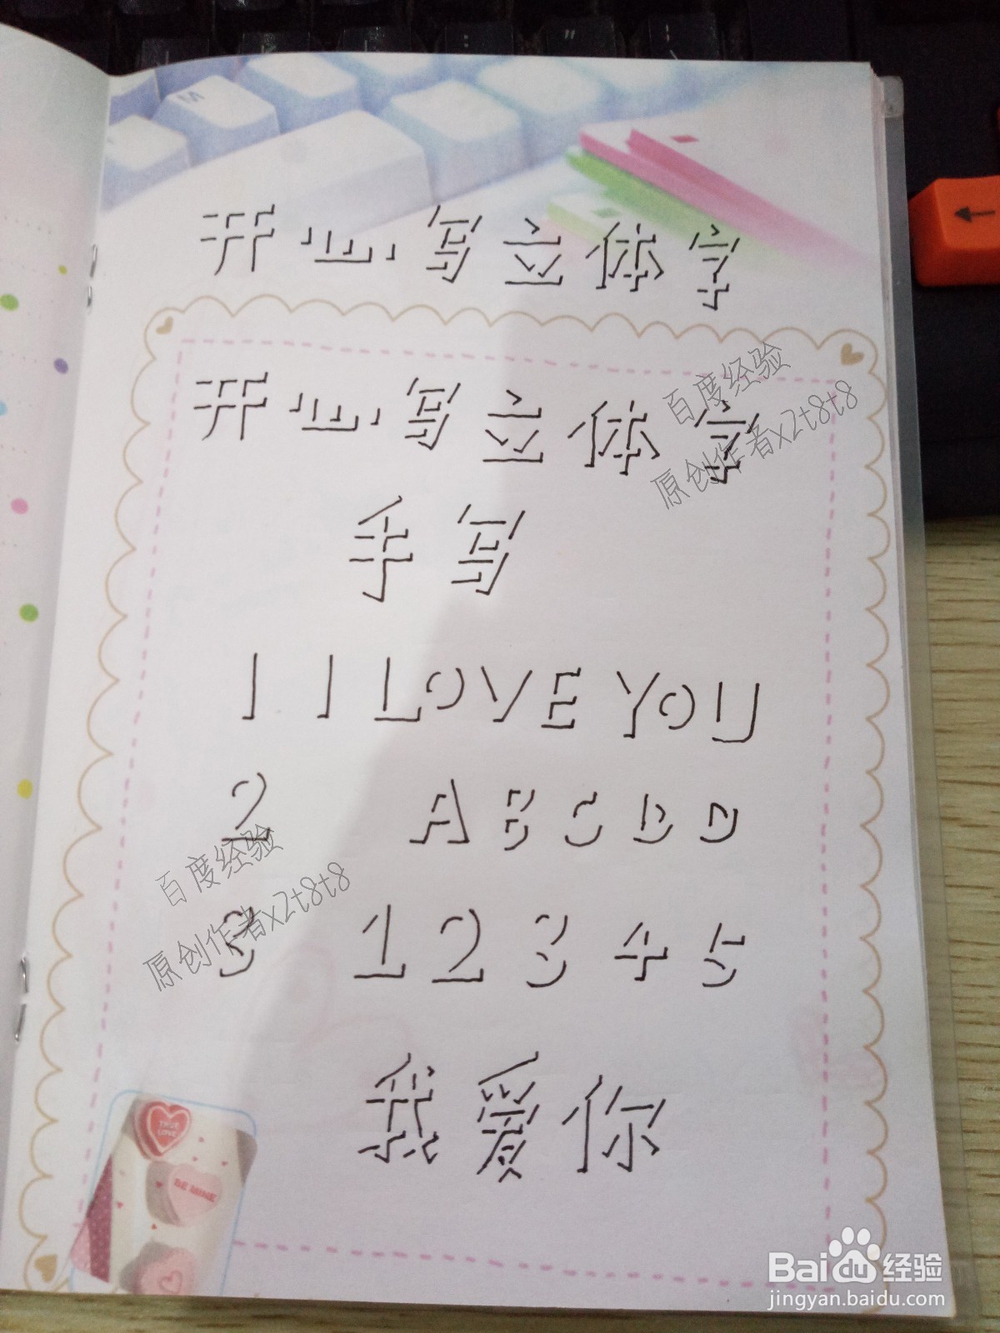 M
开心写立体字
开心写立体字
百度经验
原创作者x2t8t8
手写
1 I LOVE YOU
2 ABCDD
百度经验
原创作者x2t8t8
3 12345
我爱你
TRUE LOVE
BE MINE
Baidu经验
jingyan.baidu.com